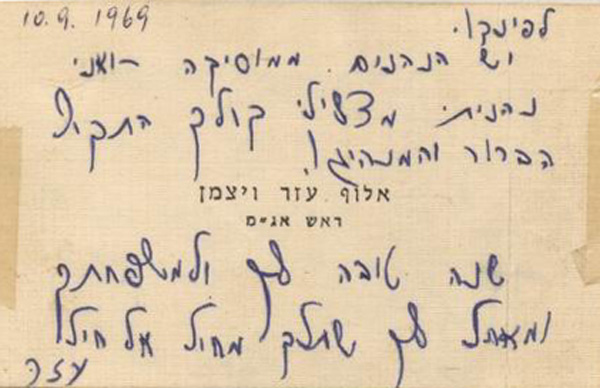 10.9.1969
לפינקו.
יש הנהנים ממוסיקה - ואני
נהניתי מצלילי קולך התקיף
הברור והמנהיג!
אלוף עזר ויצמן
ראש אג״מ
שנה טובה לך ולמשפחתך
ומאחל לך שתלך מחיל אל חיל
עזר